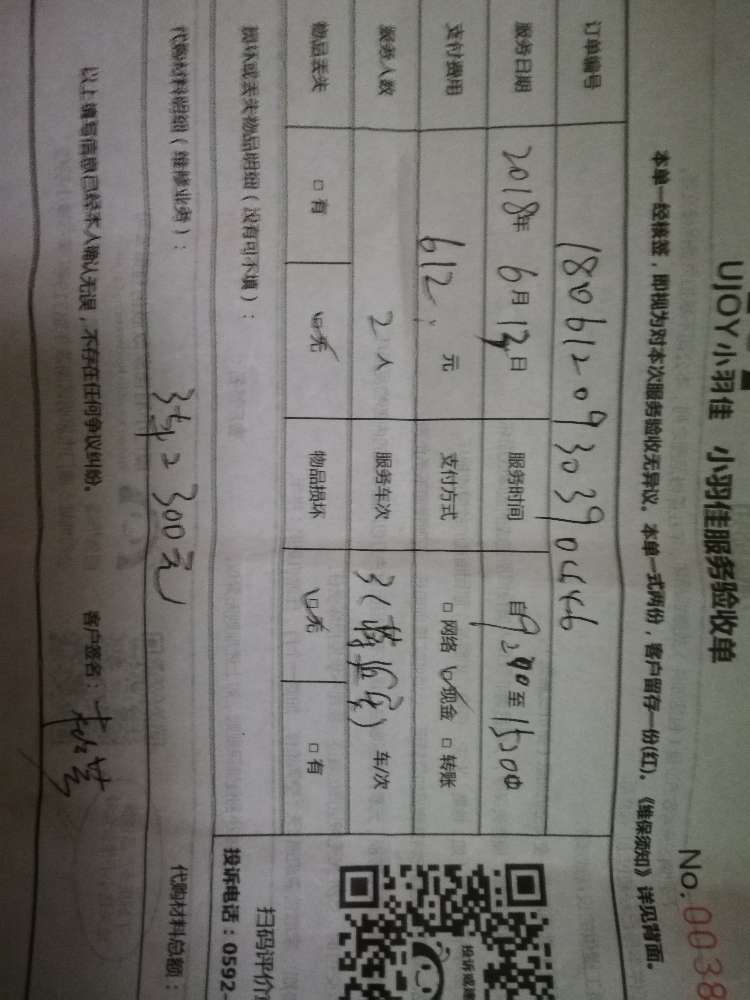 UJOY小羽佳 小羽佳服务验收单
No. 0038
本单一经核签，即视为对本次服务验收无异议。本单一式两份，客户留存一份(红)。《维保须知》详见背面。
订单编号 180612093039
服务日期 2018年 6月13日 服务时间 自 9:00 至 15:00
支付费用 612. 元 支付方式 □ 网络 ☑ 现金 □ 转账
服务人数 2 人 服务车次 车/次
物品丢失 □ 有 ☑ 无 物品损坏 ☑ 无 □ 有
损坏或丢失物品明细（没有可不填）：
扫码评价
投诉或建
投诉电话：0592-
代购材料明细（维修业务）： 300元 代购材料总额：
以上填写信息已经本人确认无误，不存在任何争议纠纷。 客户签名：